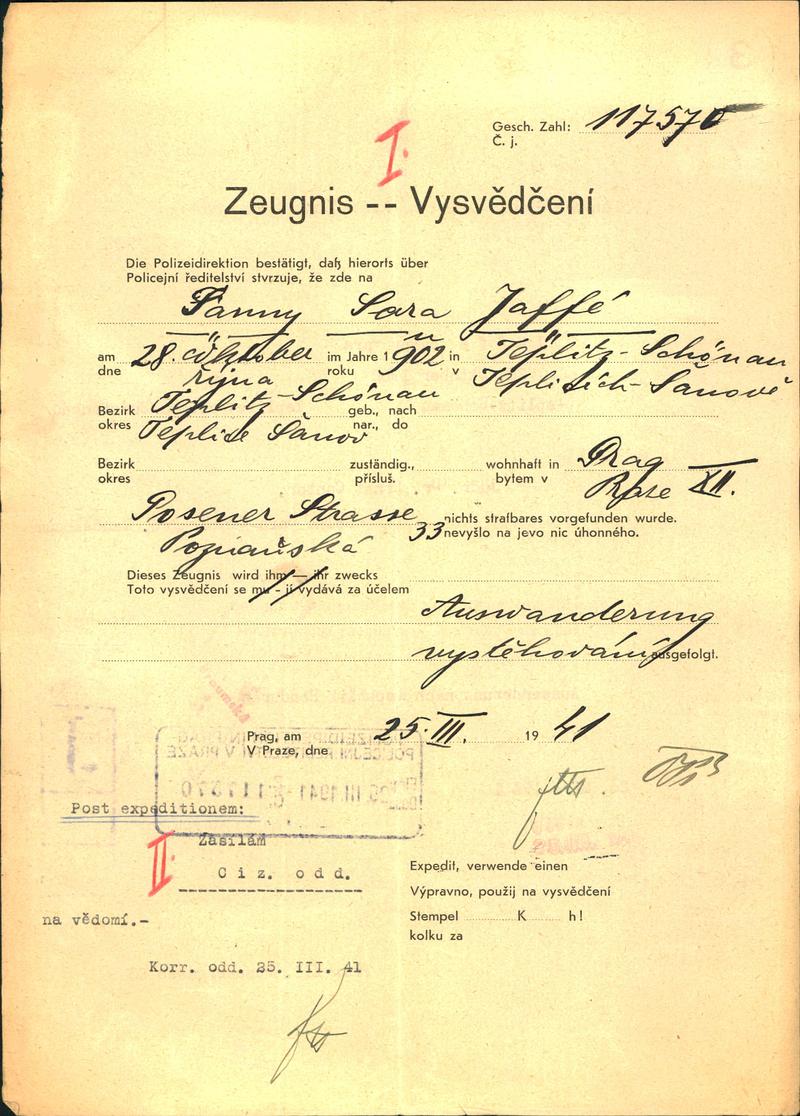 Gesch. Zahl: 117570
Č. j.
I.
Zeugnis -- Vysvědčení
Die Polizeidirektion bestätigt, daß hierorts über
Policejní ředitelství stvrzuje, že zde na
Fanny Sara Jaffé
am 28. Oktober im Jahre 1902 in Teplitz-Schönau
dne října roku v Teplicích-Šanově
Bezirk Teplitz-Schönau geb., nach
okres Teplice Šanov nar., do
Bezirk zuständig., wohnhaft in Prag
okres přísluš. bytem v Praze XII.
Posener Strasse 33 nichts strafbares vorgefunden wurde.
Poznaňská nevyšlo na jevo nic úhonného.
Dieses Zeugnis wird ihm — ihr zwecks
Toto vysvědčení se mu - jí vydává za účelem
Auswanderung
vystěhování ausgefolgt.
Prag, am 25. III. 1941
V Praze, dne
Post expeditionem:
II.
Zasílám
Ciz. odd.
na vědomí.-
Korr. odd. 25. III. 41
Expedit, verwende einen
Výpravno, použij na vysvědčení
Stempel K h!
kolku za